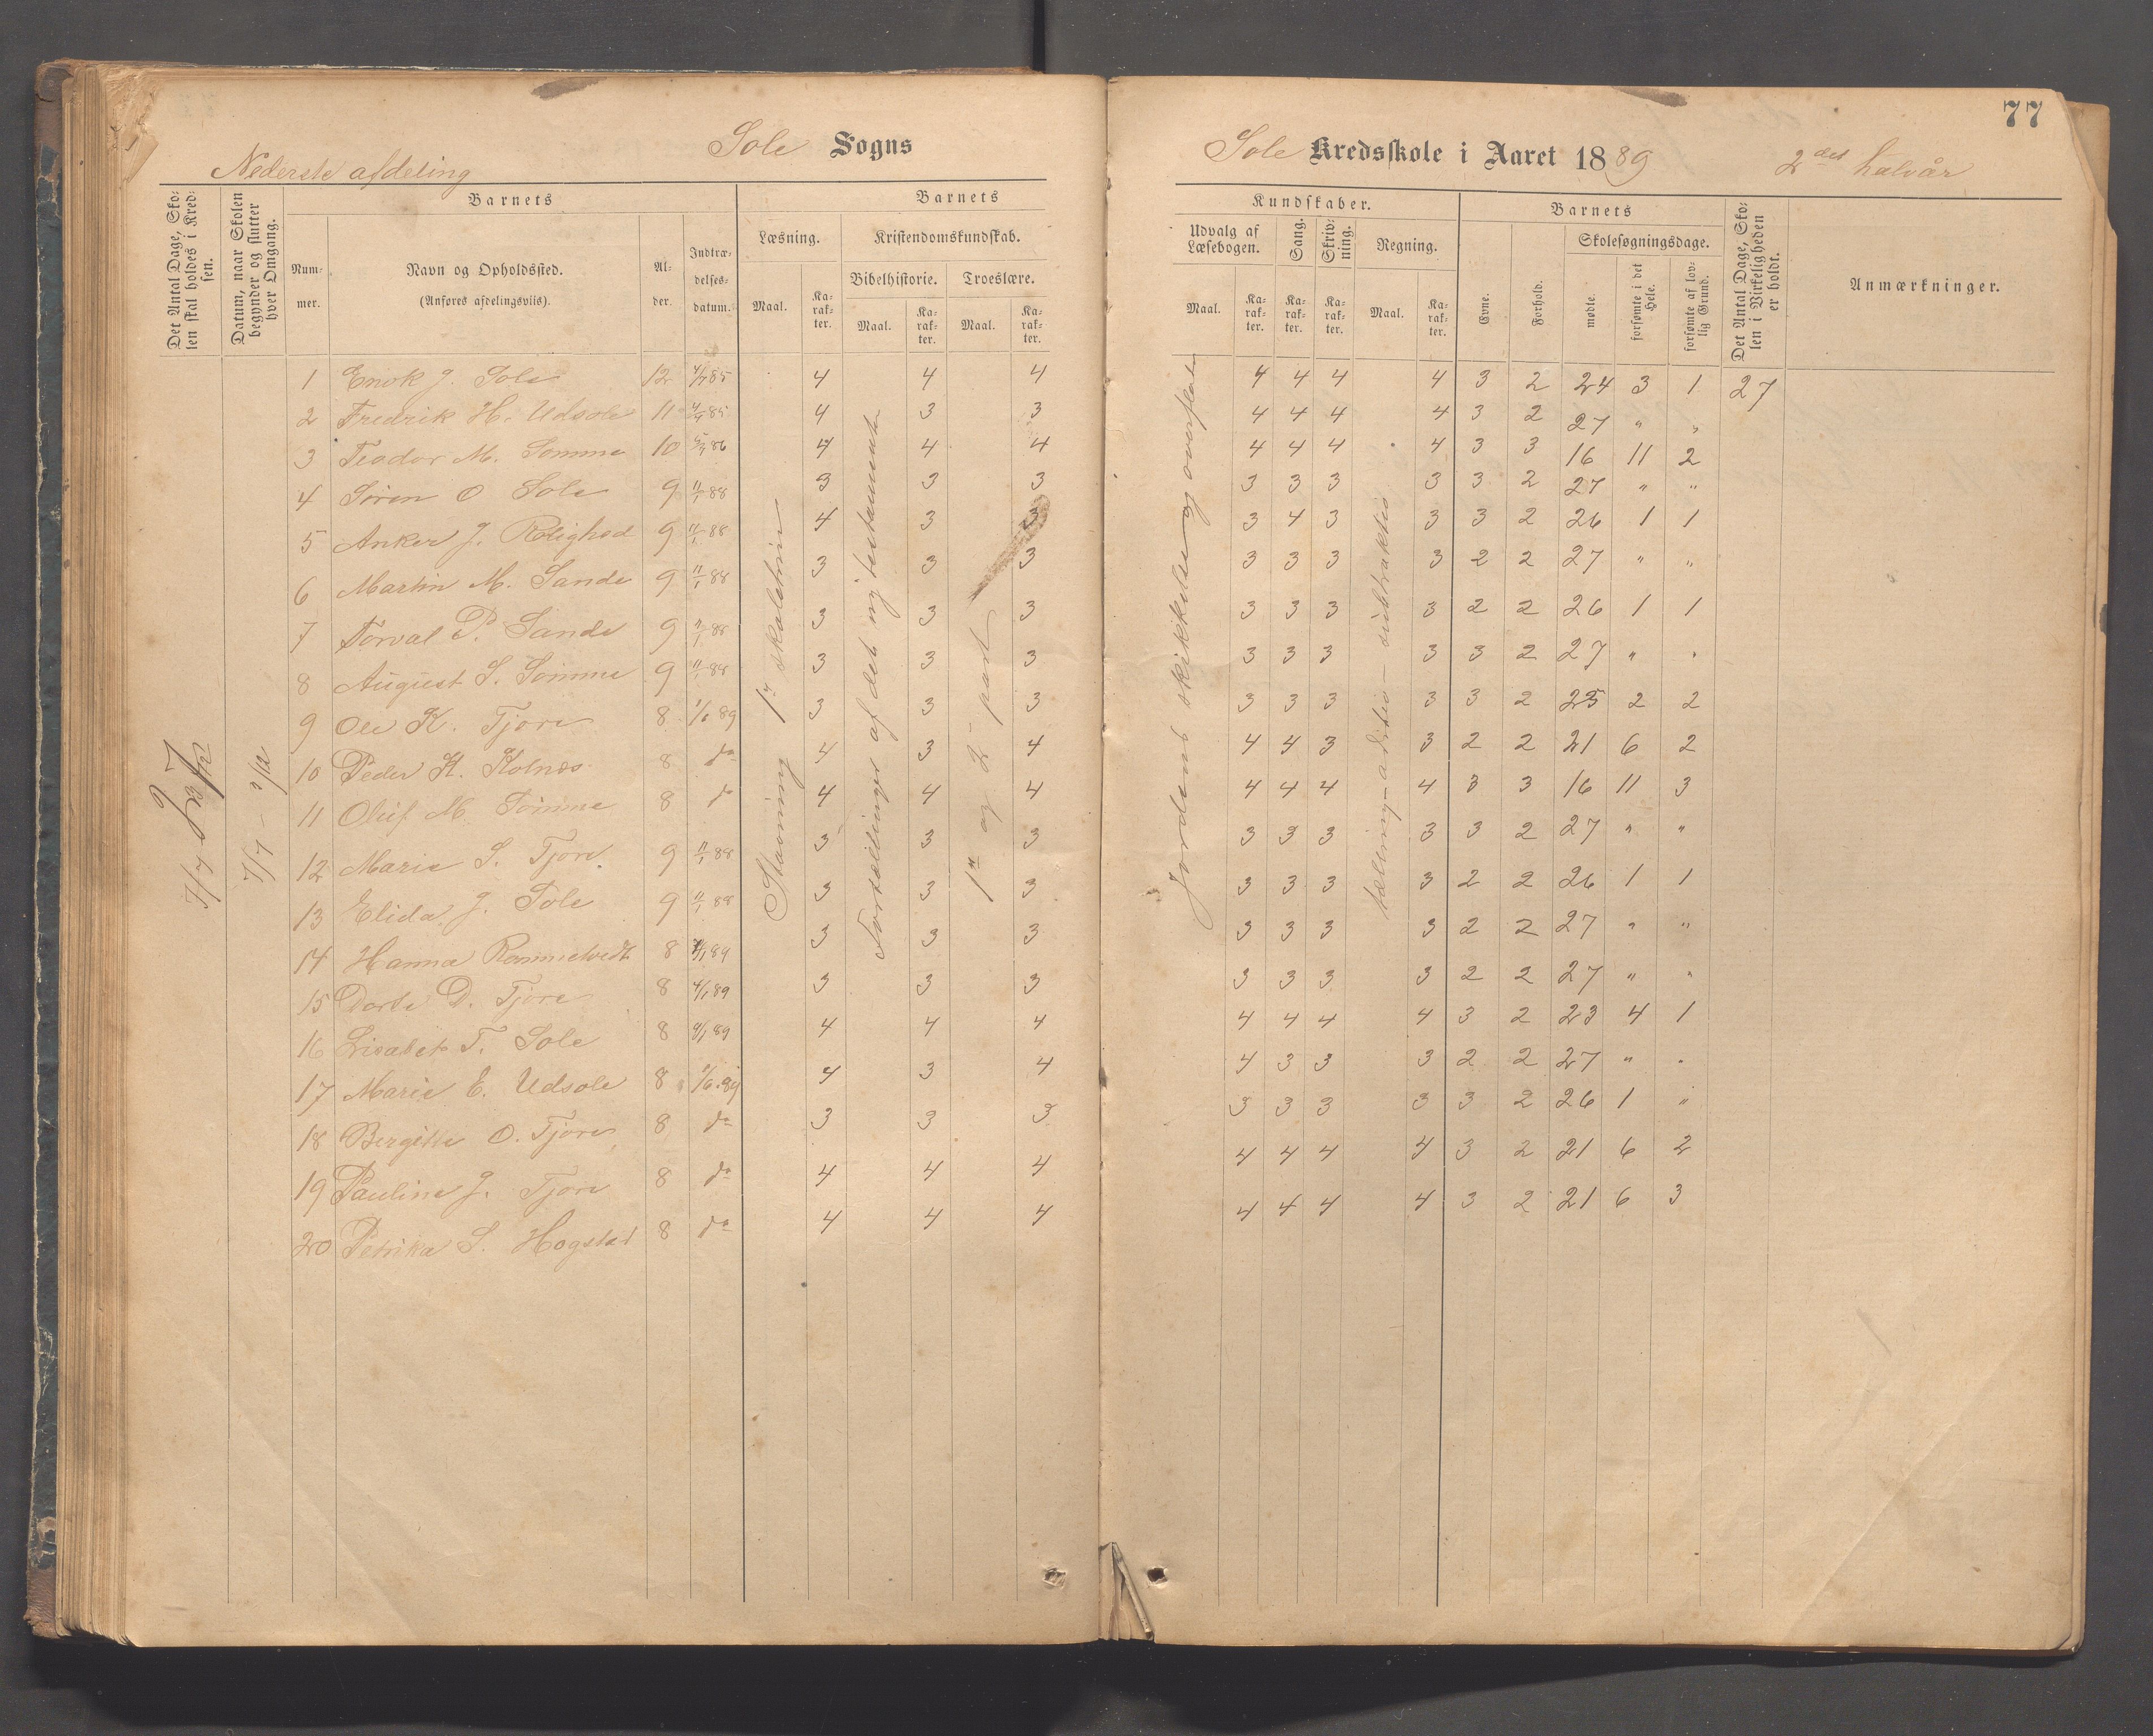 77
Sole Sogns
Sole Kredsskole i Aaret 1889 2det halvår
Nederste afdeling
Det Antal Dage, Skolen skal holdes i Kredsen.
Datum, naar Skolen begynder og slutter hver Omgang.
Barnets
Nummer.
Navn og Opholdssted.
(Anføres afdelingsviis).
Alder.
Indtrædelsesdatum.
Barnets Kundskaber.
Læsning.
Maal.
Karakter.
Kristendomskundskab.
Bibelhistorie.
Maal.
Karakter.
Troeslære.
Maal.
Karakter.
Udvalg af Læsebogen.
Maal.
Karakter.
Sang.
Karakter.
Skrivning.
Karakter.
Regning.
Maal.
Karakter.
Barnets
Evne.
Forhold.
Skolesøgningsdage.
mødte.
forsømte i det Hele.
forsømte af lovlig Grund.
Det Antal Dage, Skolen i Virkeligheden er holdt.
Anmærkninger.
7/7 - 2/12
Stavning 1ste
Fortællinger af det ny testamente
1ste og 2 part
Jordens skikkelse og overflade
tælling - aditio -
1 Enok J. Sole 12 4/7 85 4 4 4 4 4 4 4 3 2 24 3 1 27
2 Fredrik H. Udsole 11 85 4 3 3 4 4 4 4 3 2 27 " "
3 Teodor M. Sømme 10 86 4 4 4 4 4 4 4 3 3 16 11 2
4 Søren O Sole 9 11/1 88 3 3 3 3 3 3 3 3 2 27 " "
5 Anker J. Rolighed 9 11/1 88 4 3 3 3 4 3 3 3 2 26 1 1
6 Martin M. Sande 9 11/1 88 3 3 3 3 3 3 3 2 2 27 " "
7 Torval P. Sande 9 11/1 88 3 3 3 3 3 3 3 2 2 26 1 1
8 August S. Sømme 9 11/1 88 3 3 3 3 3 3 3 3 2 27 " "
9 Ole K. Tjore 8 1/6 89 3 3 3 3 3 3 3 3 2 25 2 2
10 Peder H. Kolnes 8 do 4 3 4 4 4 3 3 2 2 21 6 2
11 Oluf M. Sømme 8 do 4 4 4 4 4 4 4 3 3 16 11 3
12 Marie S. Tjore 9 11/1 88 3 3 3 3 3 3 3 3 2 27 " "
13 Elida J. Sole 9 11/1 88 3 3 3 3 3 3 3 2 2 26 1 1
14 Hanna Rommetvedt 8 89 3 3 3 3 3 3 3 2 2 27 " "
15 Dorte D. Tjore 8 4/1 89 3 3 3 3 3 3 3 2 2 27 " "
16 Lisabet T. Sole 8 89 4 4 4 4 4 4 4 3 2 23 4 1
17 Marie E. Udsole 8 1/6 89 4 3 4 4 3 3 3 2 2 27 " "
18 Bergitte O. Tjore 8 do 3 3 3 3 3 3 3 3 2 26 1 "
19 Pauline J. Tjore 8 do 4 4 4 4 4 4 4 3 2 21 6 2
20 Petrika S. Hogstad 8 do 4 4 4 4 4 4 4 3 2 21 6 3